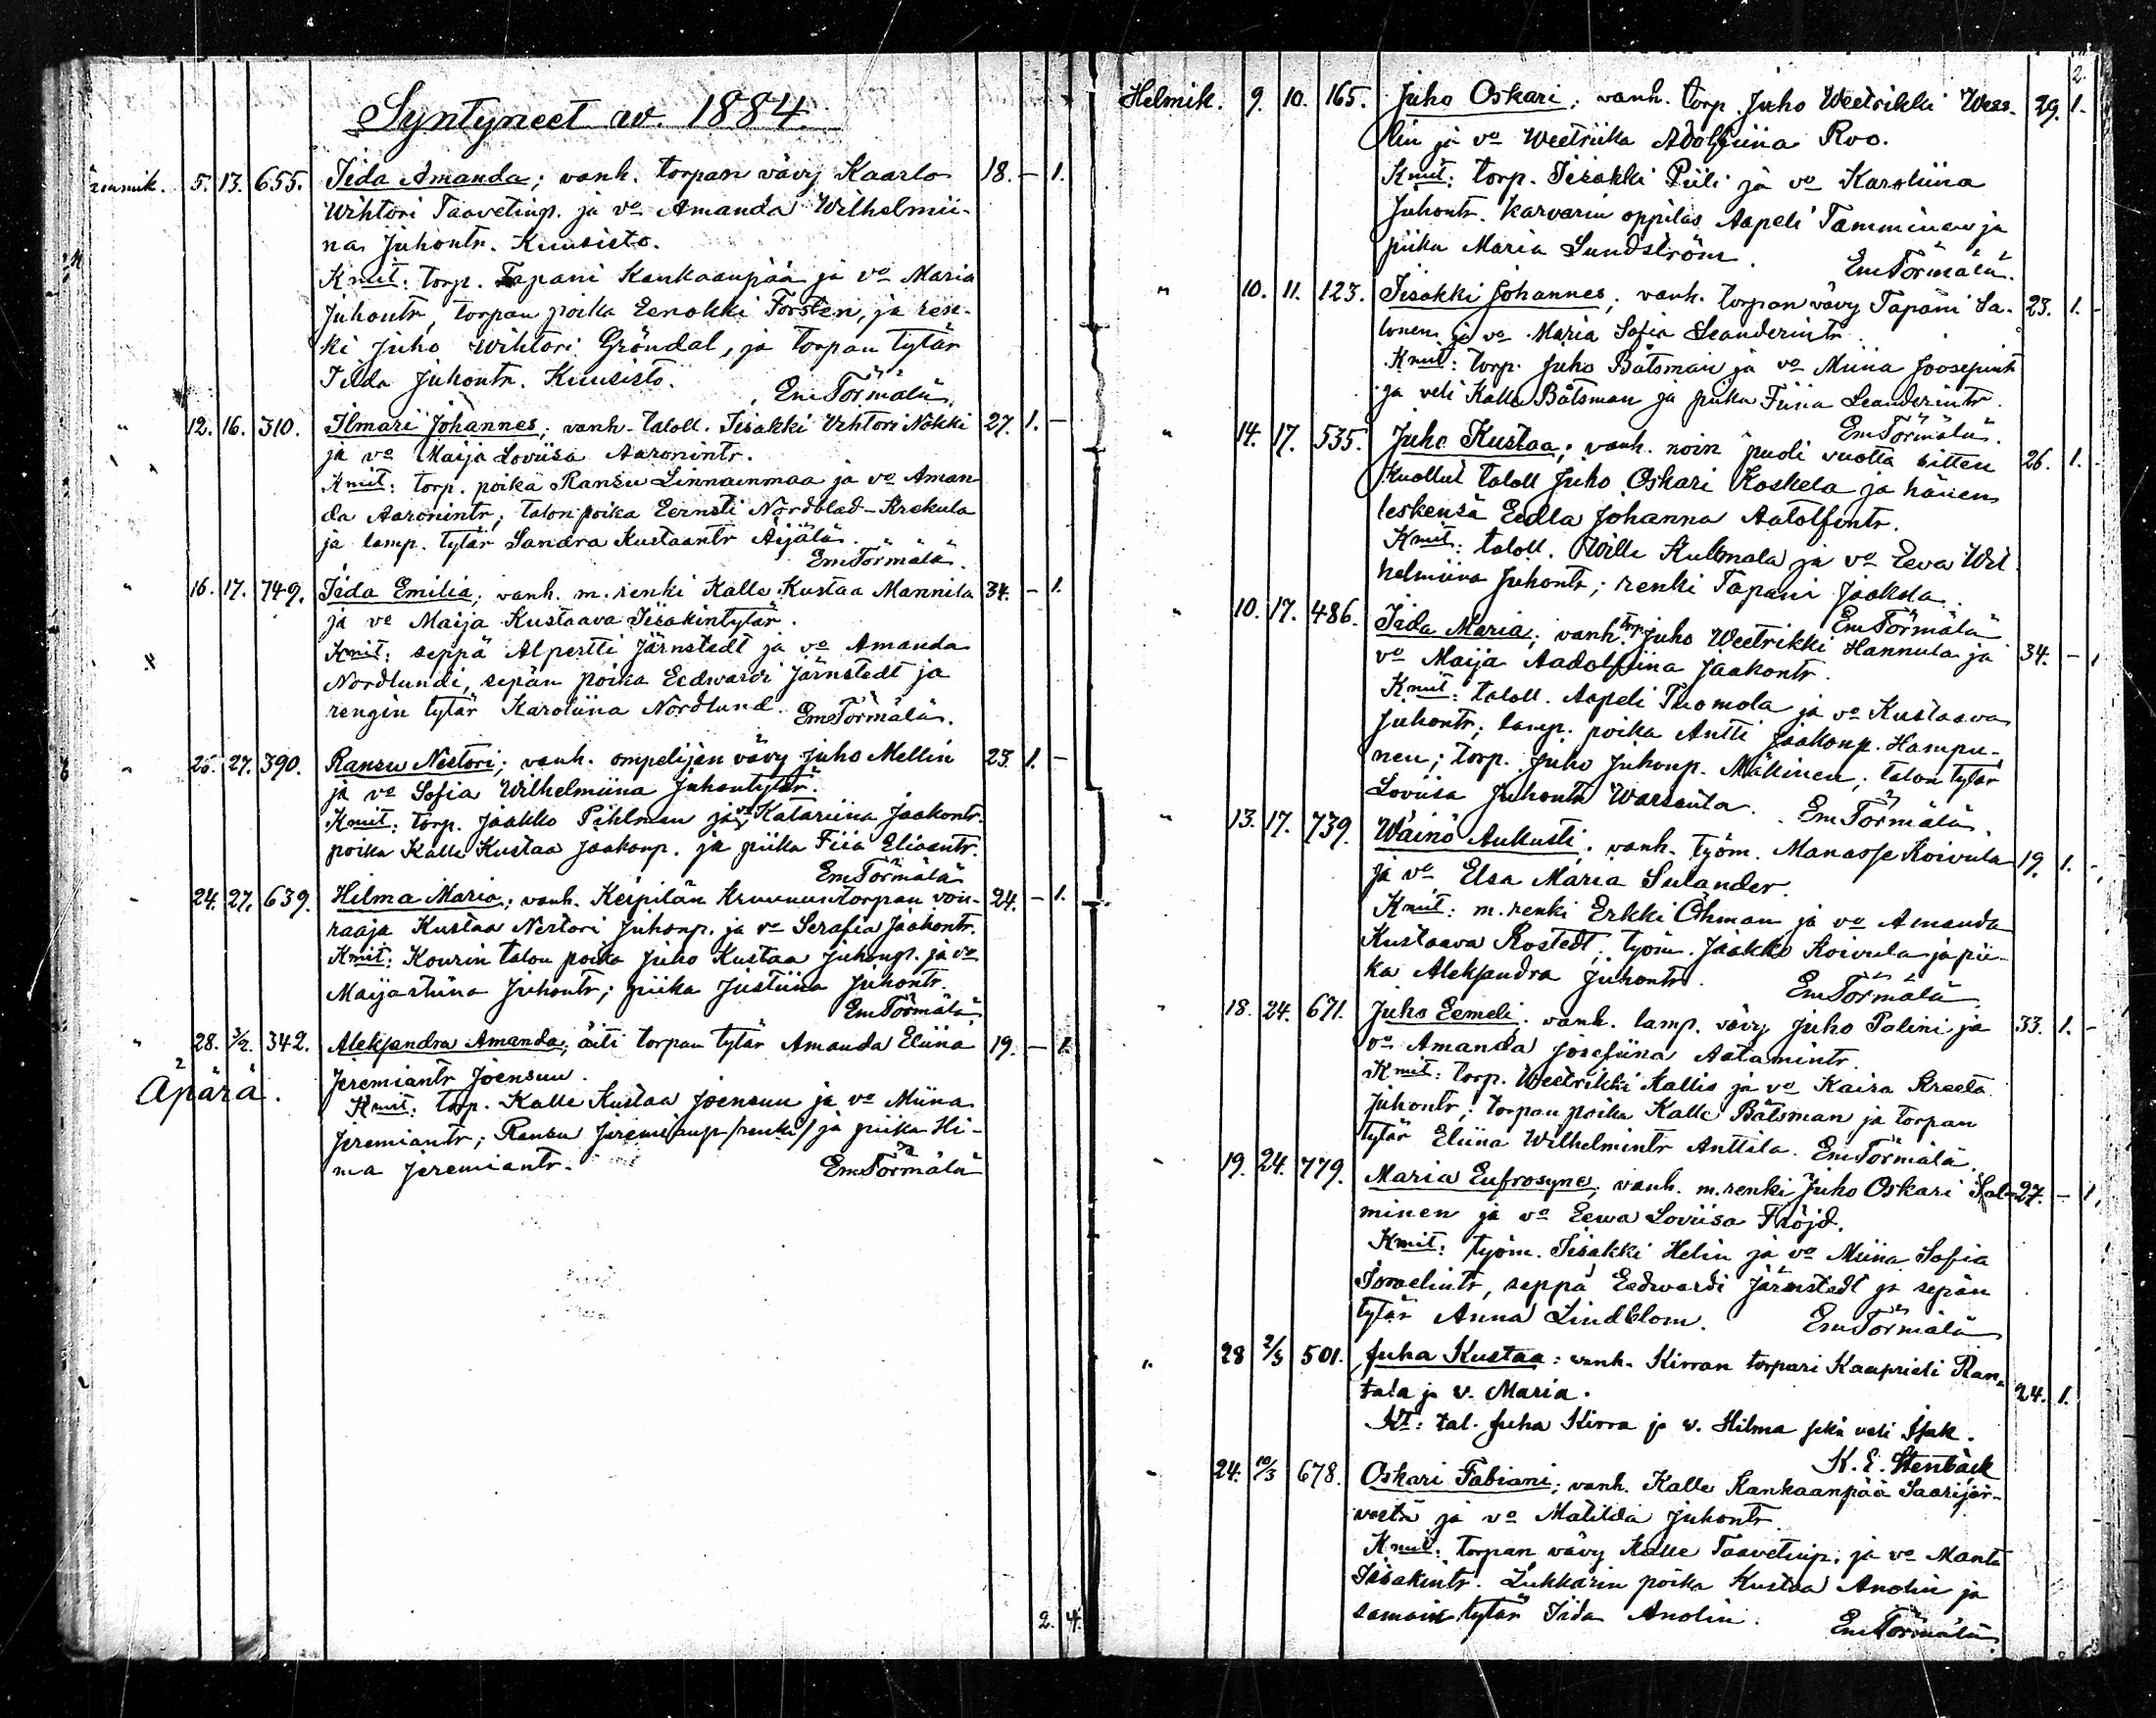 Syntyneet w. 1884.
5. 13. 655. Iida Amanda; vanh. torpan vävy Kaarlo 18. – 1.
Wihtori Taavetinp. ja vo Amanda Wilhelmii-
na Juhontr. Kuusisto.
Kmit: torp. Tapani Kankaanpää ja vo Maria
Juhontr, torpan poika Eenokki Forsten, ja ren-
ki Juho Wihtori Gröndal, ja torpan tytär
Iida Juhontr. Kuusisto. Em Törmälä.
" 12. 16. 310. Ilmari Johannes; vanh. taloll. Iisakki Wihtori Nokki 27. 1. –
ja vo Maija Loviisa Aaronintr.
Kmit: torp. poika Ransu Linnainmaa ja vo Aman-
da Aaronintr; talon poika Eernsti Nordblad-Krekula
ja lamp. tytär Sandra Kustaantr Äijälä.
Em Törmälä.
" 16. 17. 749. Iida Emilia; vanh. m. renki Kalle Kustaa Mannila 34. – 1.
ja vo Maija Kustaava Iisakintytär.
Kmit: seppä Alpertti Järnstedt ja vo Amanda
Nordlundi, sepän poika Eedwardi Järnstedt ja
rengin tytär Karoliina Nordlund. Em Törmälä.
" 26. 27. 390. Ransu Nestori; vanh. ompelijan vävy Juho Mellin 23. 1. –
ja vo Sofia Wilhelmiina Juhontytär.
Kmit: torp. Jaakko Pihlman ja vo Katariina Jaakontr.
poika Kalle Kustaa Jaakonp. ja piika Fiia Eliaantr.
Em Törmälä
" 24. 27. 639. Hilma Maria; vanh. Keipilän Kruununtorpan vou- 24. – 1.
raaja Kustaa Nestori Juhonp. ja vo Serafia Jaakontr.
Kmit: Kourin talon poika Juho Kustaa Juhonp. ja vo
Maijastiina Juhontr; piika Justiina Juhontr.
Em Törmälä
" 28. 3/2. 342. Aleksandra Amanda; äiti torpan tytär Amanda Eliina 19. – 1.
Äpärä. Jeremiantr Joensuu.
Kmit: torp. Kalle Kustaa Joensuu ja vo Miina
Jeremiantr; Ransu Jeremianp /renki/ ja piika Hi-
ma Jeremiantr. Em Törmälä
2. 4.
2.
Helmik. 9. 10. 165. Juho Oskari; vanh. torp. Juho Weetrikki Wess- 29. 1.
lin ja vo Weetriika Adolfiina Roo.
Kmit: torp. Iisakki Piili ja vo Karoliina
Juhontr. karvarin oppilas Aapeli Tamminen ja
piika Maria Lundström. Em Törmälä.
" 10. 11. 123. Iisakki Johannes; vanh. torpan vävy Tapani Sa- 23. 1. –
lonen ja vo Maria Sofia Leanderintr.
Kmit: torp. Juho Båtsman ja vo Miina Joosepintr
ja veli Kalle Båtsman ja piika Fiina Leanderintr.
Em Törmälä.
" 14. 17. 535. Juho Kustaa; vanh. noin puoli vuotta sitten 26. 1. –
kuollut taloll Juho Oskari Koskela ja hänen
leskensä Eedla Johanna Aatolfintr.
Kmit: taloll. Wille Kulmala ja vo Eewa Wil-
helmiina Juhontr; renki Tapani Jaakola.
Em Törmälä
" 10. 17. 486. Iida Maria; vanh. torp. Juho Weetrikki Hannula ja 34. – 1
vo Maija Aadolfiina Jaakontr.
Kmit: taloll. Aapeli Tuomola ja vo Kustaava
Juhontr; lamp. poika Antti Jaakonp. Hampu-
nen; torp. Juho Juhonp. Mäkinen; talon tytär
Loviisa Juhontr Warsala. Em Törmälä.
" 13. 17. 739. Wäinö Aukusti; vanh. työm. Manasse Koivula 19. 1. –
ja vo Elsa Maria Sulander.
Kmit: m. renki Erkki Öhman ja vo Amanda
Kustaava Rostedt; työm. Jaakko Koivula ja pii-
ka Aleksandra Juhontr. Em Törmälä
" 18. 24. 671. Juho Eemeli; vanh. lamp. vävy Juho Palini ja 33. 1. –
vo Amanda Josefiina Aatamintr.
Kmit: torp. Weetrikki Kallio ja vo Kaisa Kreeta
Juhontr; torpan poika Kalle Båtsman ja torpan
tytär Eliina Wilhelmintr Anttila. Em Törmälä.
" 19. 24. 779. Maria Eufrosyne; vanh. m. renki Juho Oskari Sal- 27. – 1.
minen ja vo Eewa Loviisa Fröjd.
Kmit: työm. Iisakki Helin ja vo Miina Sofia
Israelintr, seppä Eedwardi Järnstedt ja sepän
tytär Anna Lindblom. Em Törmälä
" 28 2/3 501. Juha Kustaa: vanh. Kirran torpari Kaaprieli Ran- 24. 1.
tala ja v. Maria.
Kt: tal. Juha Kirra ja v. Hilma sekä veli Isak.
K. E. Stenbäck
" 24. 10/3 678. Oskari Fabiani; vanh. Kalle Kankaanpää Saarijär-
vestä ja vo Matilda Juhontr
Kmit: torpan vävy Kalle Taavetinp. ja vo Manta
Iisakintr. Lukkarin poika Kustaa Anolin ja
saman tytär Iida Anolin. Em Törmälä.